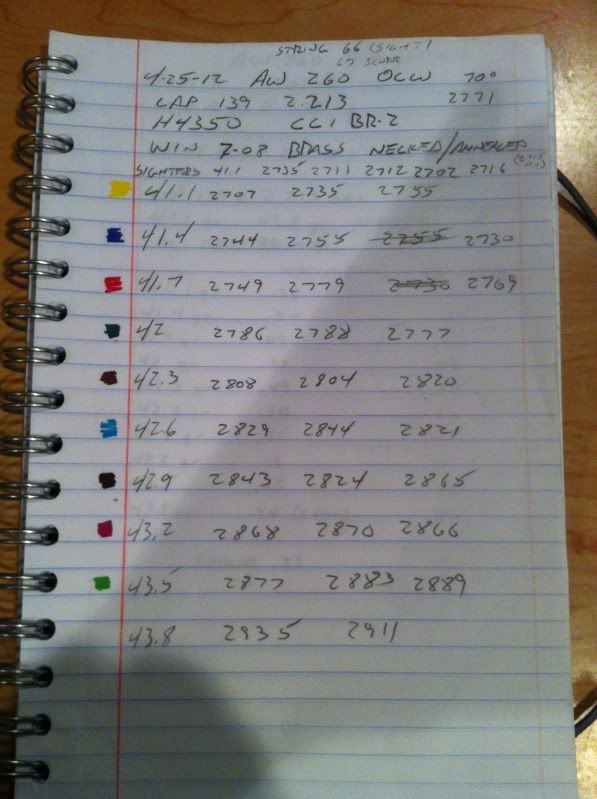 STRING 66 (SIGHT)
67 SCORE
4-25-12 AW 260 OCW 70°
LAP 139 2.213 2771
H4350 CCI BR-2
WIN 7-08 BRASS NECKED/ANNEALED
SIGHTERS 41.1 2735 2711 2712 2702 2716
41.1 2707 2735 2755
41.4 2744 2755 2755 2730
41.7 2749 2779 2730 2769
42 2786 2788 2777
42.3 2808 2804 2820
42.6 2829 2844 2821
42.9 2843 2824 2865
43.2 2868 2870 2866
43.5 2877 2883 2889
43.8 2935 2911